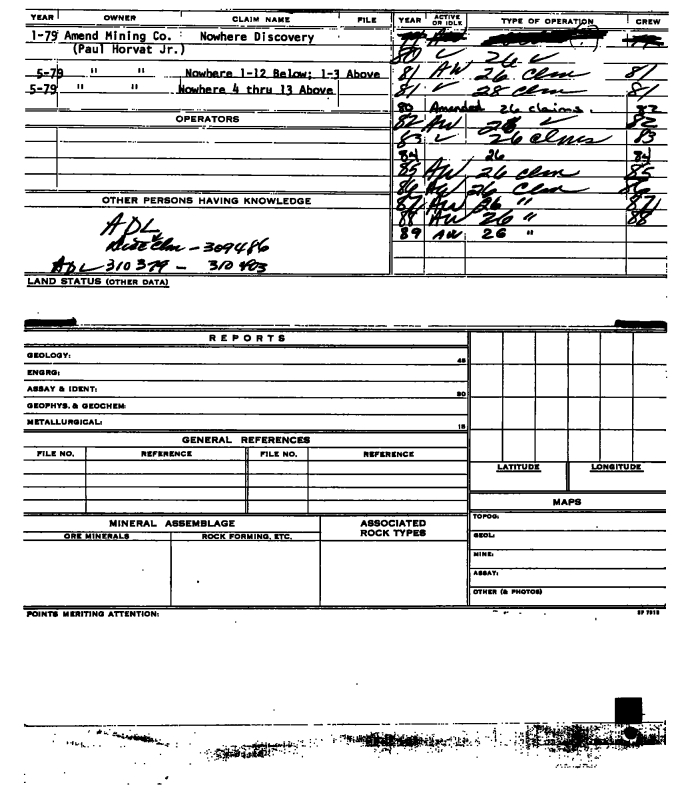 YEAR OWNER CLAIM NAME FILE
1-79 Amend Mining Co. Nowhere Discovery
(Paul Horvat Jr.)
5-79 " " Nowhere 1-12 Below; 1-3 Above
5-79 " " Nowhere 4 thru 13 Above
OPERATORS
OTHER PERSONS HAVING KNOWLEDGE
ADL
clm - 309486
ADL 310379 - 310403
LAND STATUS (OTHER DATA)
YEAR ACTIVE OR IDLE TYPE OF OPERATION CREW
80 ✓ 26 ✓
81 AW 26 Clm 81
81 ✓ 28 Clm 81
80 Amended 26 claims. 82
82 AW 28 ✓ 82
83 ✓ 26 clms 83
84 26 84
85 AW 26 clm 85
86 AW 26 Clm 86
87 AW 26 " 87
88 AW 26 " 88
89 AW 26 "
REPORTS
GEOLOGY: 45
ENGRG:
ASSAY & IDENT: 30
GEOPHYS. & GEOCHEM:
METALLURGICAL: 15
GENERAL REFERENCES
FILE NO. REFERENCE FILE NO. REFERENCE
LATITUDE LONGITUDE
MAPS
TOPOG:
GEOL:
MINE:
ASSAY:
OTHER (& PHOTOS)
MINERAL ASSEMBLAGE
ORE MINERALS ROCK FORMING, ETC.
ASSOCIATED ROCK TYPES
POINTS MERITING ATTENTION: